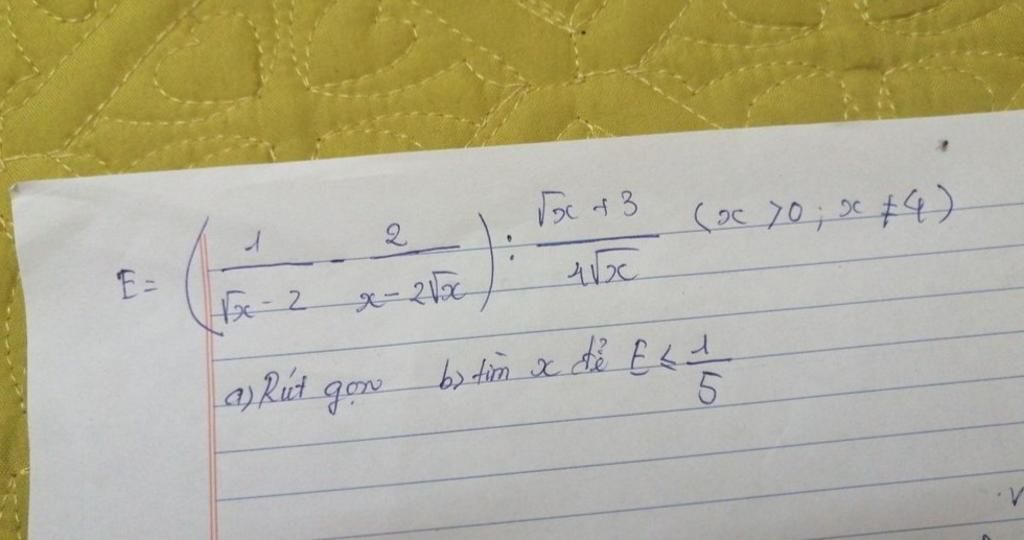 E = (1/(√x - 2) - 2/(x - 2√x)) : (√x + 3)/(4√x) (x > 0 ; x ≠ 4)
a) Rút gọn b) tìm x để E ≤ 1/5